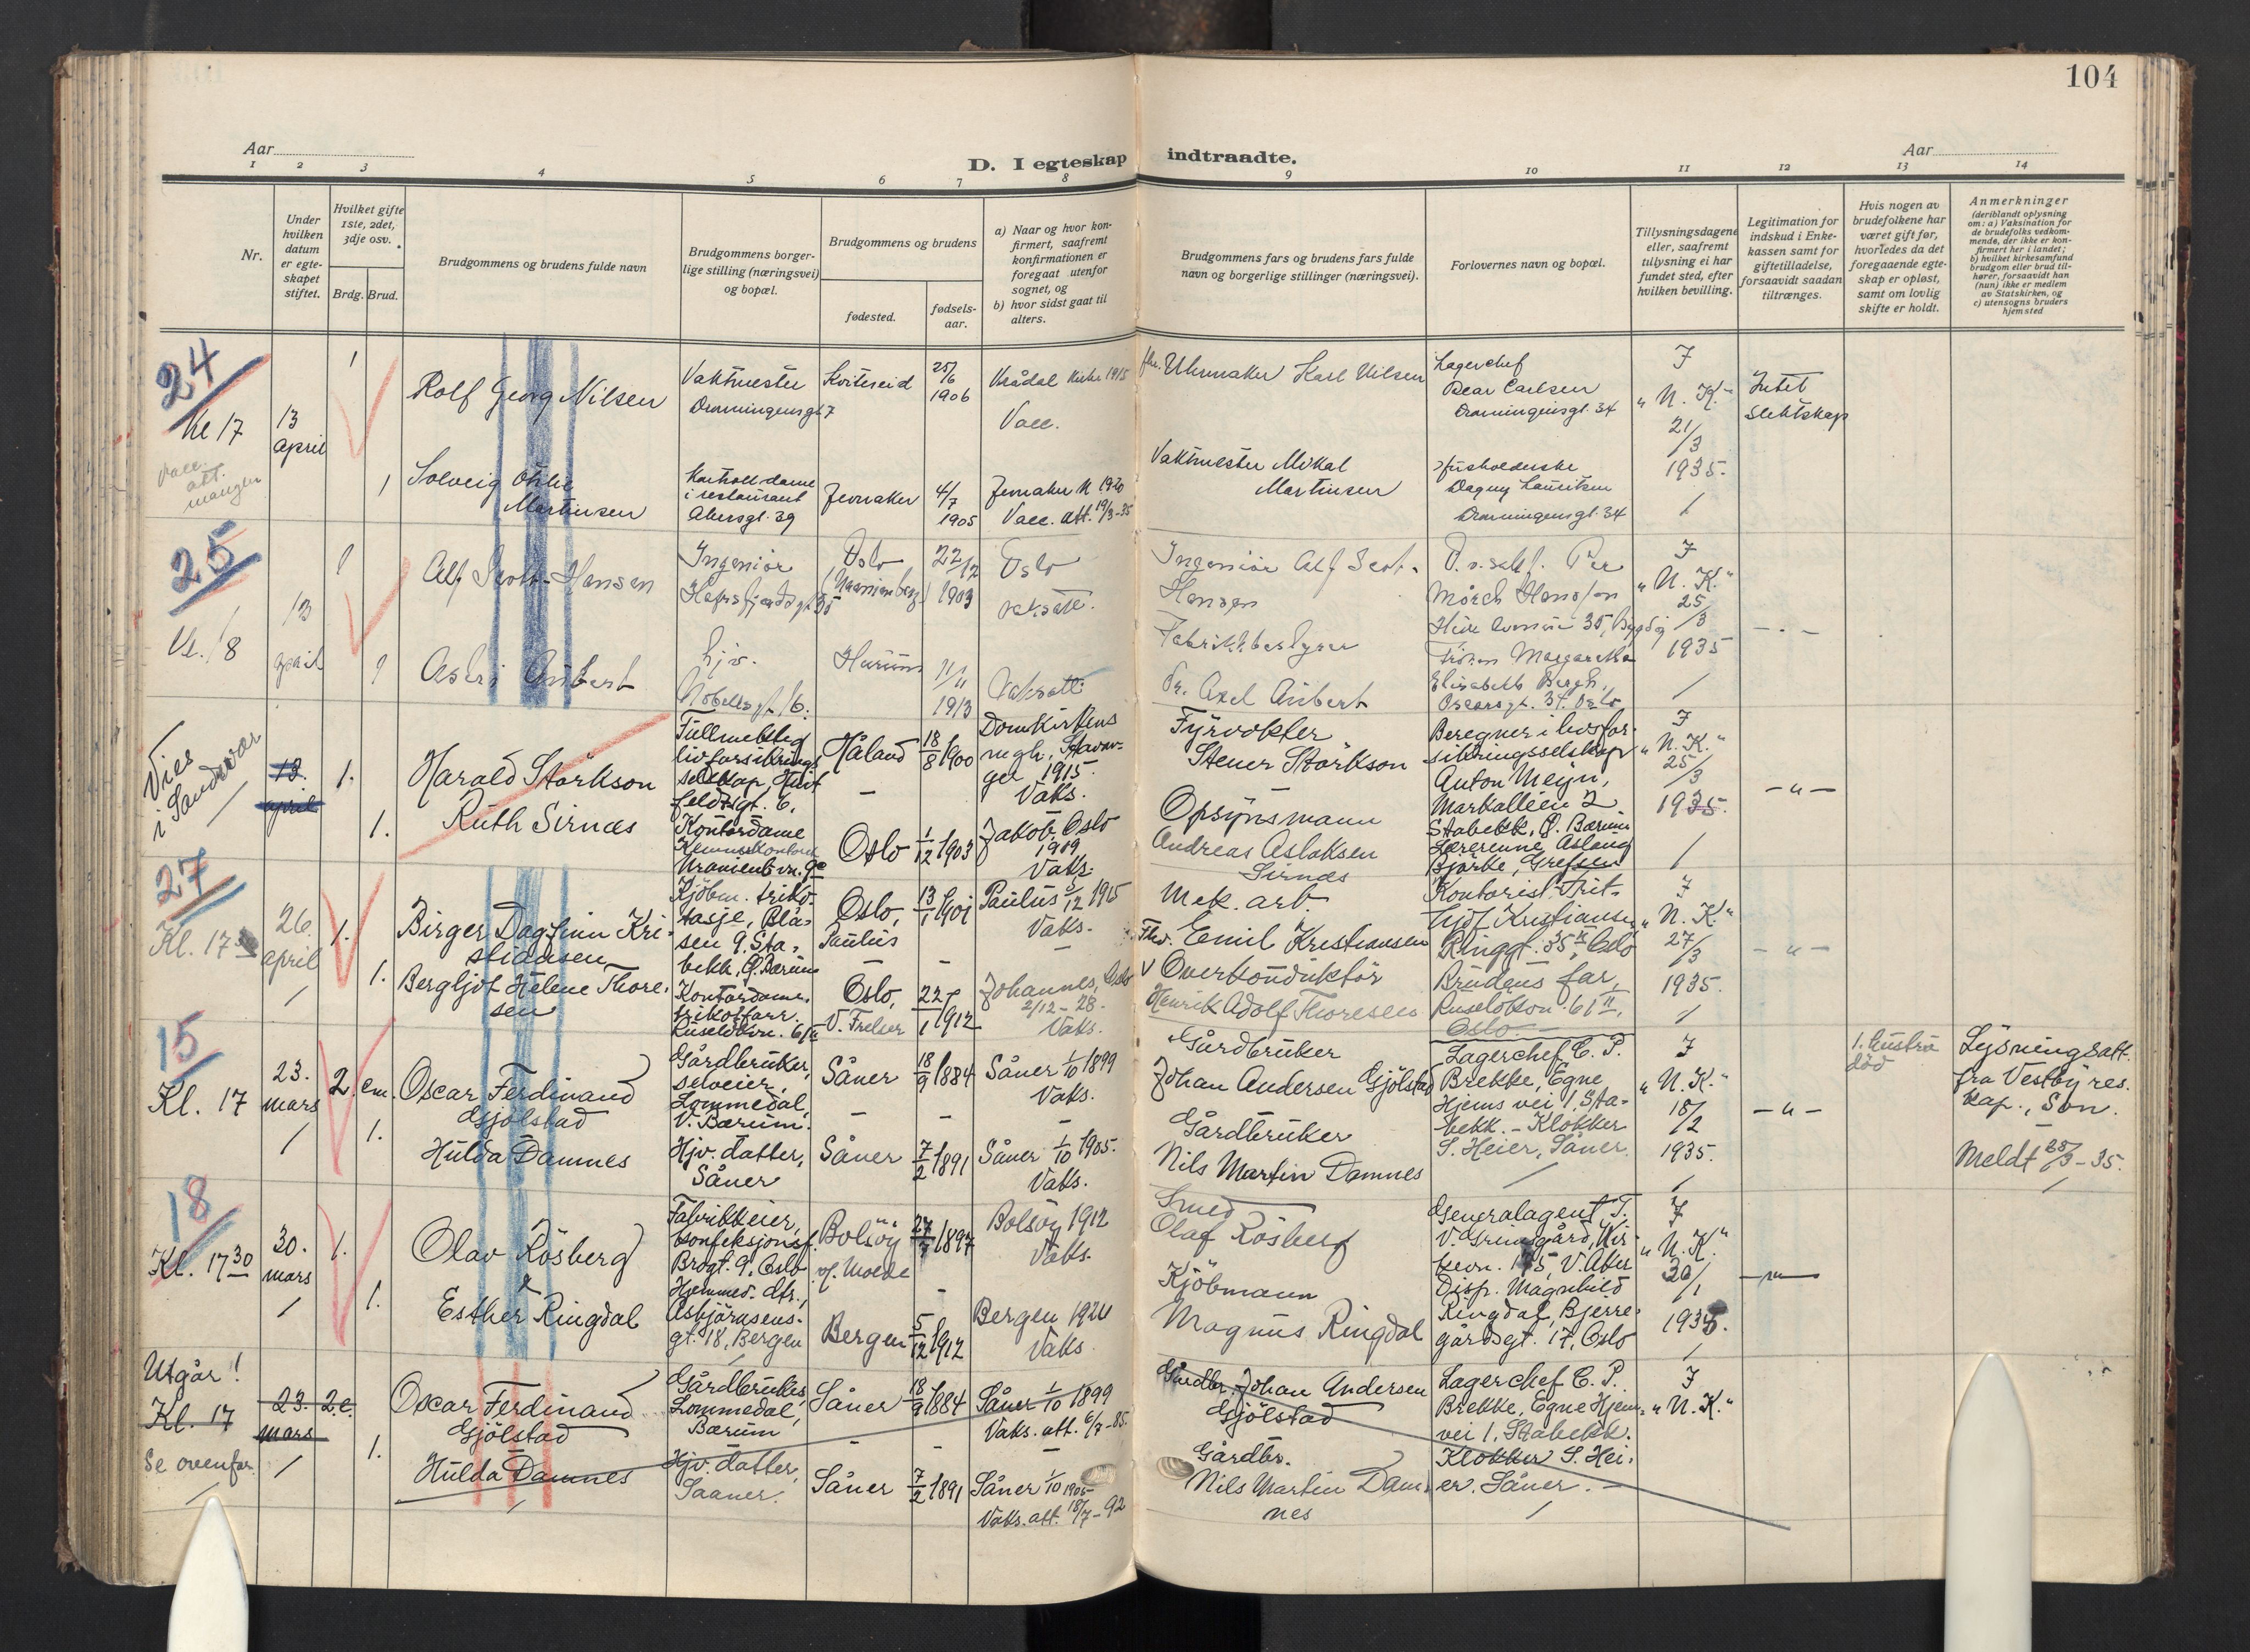 104
Aar
Aar
D. I egteskap indtraadte.
1 2 3 4 5 6 7 8 9 10 11 12 13 14
Nr.
Under
hvilken
datum
er egte-
skapet
stiftet.
Hvilket gifte
1ste, 2det,
3dje osv.
Brdg.
Brud.
Brudgommens og brudens fulde navn
Brudgommens borger-
lige stilling (næringsvei)
og bopæl.
Brudgommens og brudens
fødested.
fødsels-
aar.
a) Naar og hvor kon-
firmert, saafremt
konfirmationen er
foregaat utenfor
sognet, og
b) hvor sidst gaat til
alters.
Brudgommens fars og brudens fars fulde
navn og borgerlige stillinger (næringsvei).
Forlovernes navn og bopæl.
Tillysningsdagene
eller, saafremt
tillysning ei har
fundet sted, efter
hvilken bevilling.
Legitimation for
indskud i Enke-
kassen samt for
giftetilladelse,
forsaavidt saadan
tiltrænges.
Hvis nogen av
brudefolkene har
været gift før,
hvorledes da det
foregaaende egte-
skap er opløst,
samt om lovlig
skifte er holdt.
Anmerkninger
(deriblandt oplysning
om: a) Vaksination for
de brudefolks vedkom-
mende, der ikke er kon-
firmert her i landet;
b) hvilket kirkesamfund
brudgom eller brud til-
hører, forsaavidt han
(hun) ikke er medlem
av Statskirken, og
c) utensogns bruders
hjemsted
24
Kl 17
Vacc.
att.
mangler
13
april
1
1
Rolf Georg Nilsen
Solveig
Martinsen
Vaktmester
Dronningensgt 7
Kontroll-dame
i restaurant
Akersgt. 39
Kviteseid
Jevnaker
25/6
1906
4/7
1905
Vrådal Kirke 1915
Vacc.
Jevnaker K 1920
Vacc. att. 19/3-35
Uhrmaker Karl Nilsen
Vaktmester Mikal
Martinsen
Lagerchef
Carlsen
Dronningensgt. 34
Husholderske
Dagny Lauritsen
Dronningensgt. 34
I
"N. K."
21/3
1935.
Intet
slektskap
25
Kl. 18
13
april
1
1
Alf Scott-Hansen
Aubert
Ingeniör
Hafrsfjordsgt 35
hjv.
Nobellsgt. 16.
Oslo
(Uranienborg)
Hurum
22/12
1903
11/11
1913
Oslo
vaksatt.
Vaksatt
Ingeniör Alf Scott-
Hansen
Fabrikkbestyrer
Axel Aubert
Per
Mörch Hansson
35, Bygdöy
Fröken Margarethe
Elisabeth Bergh,
Oscarsgt. 34. Oslo
I
"N. K."
25/3
1935
- " -
Vies
i Sandsvær
13.
april
1.
1.
Harald Störkson
Ruth Sirnæs
Fullmektig
livforsikrings
selskap, Huit
feldtsgt. 6.
Kontordame
Kemnerkontoret
Uranienb.vn. 9
Håland
-
Oslo
18/8 1900
1/12 1903
Domkirkens
megh, Stavan-
ger 1915.
Vaks.
Jakob, Oslo
1919
Vaks.
Fyrvokter
Stener Störkson
Opsynsmann
Andreas Aslaksen
Sirnæs
Beregner i livsfor-
sikringsselskap
Anton Meyn,
Markalléen 2
Stabekk, Ö. Bærum
Lærerinne Aslaug
Bjørke, Grefsen
I
"N. K."
25/3
1935.
- " -
27
Kl. 17 30
26.
april
1.
1.
Birger Dagfinn Kri-
stiansen
Bergljot Helene Thore-
sen
Kjöbm. triko-
tasje, Blå-
sen 9, Sta-
bekk, Ö. Bærum
Kontordame,
trikotforr.
Ruselökvn. 61 II
Oslo,
Paulus
-
Oslo,
V. Frelser
13/1 1901
-
22/1 1912
Paulus 5/12 1915
Vaks.
-
Johannes, Oslo
2/12-28.
Vaks.
Mek. arb.
Thv. Emil Kristiansen
Overkonduktör
Henrik Adolf Thoresen
Kontorist Frit-
hjof Kristiansen
Ringgt. 35 II, Oslo
Brudens far,
Ruselökvn. 61 II,
Oslo.
I
"N. K."
27/3
1935.
- " -
15
Kl. 17
23.
mars
2.
em.
1.
Oscar Ferdinand
Gjölstad
Hulda Damnes
Gårdbruker,
selveier,
Lommedal,
V. Bærum.
Hjv. datter,
Såner
Såner
-
Såner
18/9 1884
-
7/2 1891
Såner 1/10 1899
Vaks.
-
Såner 1/10 1905.
Vaks.
Gårdbruker
Johan Andersen Gjölstad
Gårdbruker
Nils Martin Damnes
Lagerchef C. P.
Brekke, Egne
Hjems vei 1, Sta-
bekk. - Klokker
S. Heier, Såner
I
"N. K."
18/2
1935.
- " -
1. hustru
död
Lysningsatt.
fra Vestby res.
kap., Son.
Meldt 28/3-35.
18
Kl. 17 30
30.
mars
1.
1.
Olav Rösberg
&
Esther Ringdal
Fabrikkeier,
konfeksjonsf.
Brogt. 9, Oslo
Hjemmev. dtr.,
Asbjörnsens-
gt. 18, Bergen
Bolsöy
p. Molde
Bergen
27/7 1897
5/12 1912
Bolsöy 1912
Vaks.
-
Bergen 1924
Vaks.
Smed
Olaf Rösberg
Kjöbmann
Magnus Ringdal
Generalagent T.
V. Grimsgård, Kir-
kevn. 175, V. Aker
Disp. Magnhild
Ringdal, Bjerre-
gårdsgt. 17, Oslo
I
"N. K."
30/1
1935.
- " -
Utgår!
Kl. 17
Se ovenfor
23.
mars
2. e.
1.
Oscar Ferdinand
Gjölstad
Hulda Damnes
Gårdbruker,
Lommedal,
Bærum
Hjv. datter,
Saaner.
Såner
-
Såner
18/9 1884
-
7/2 1891
Såner 1/10 1899
Vaks. att. 6/7-85.
-
Såner 1/10 1905
Vaks. att. 18/7-92
Gårdbr. Johan Andersen
Gjölstad
Gårdbr.
Nils Martin Dam-
nes
Lagerchef C. P.
Brekke, Egne Hjems
vei 1. Stabekk.
Klokker S. Hei-
er, Såner.
I
"N. K."